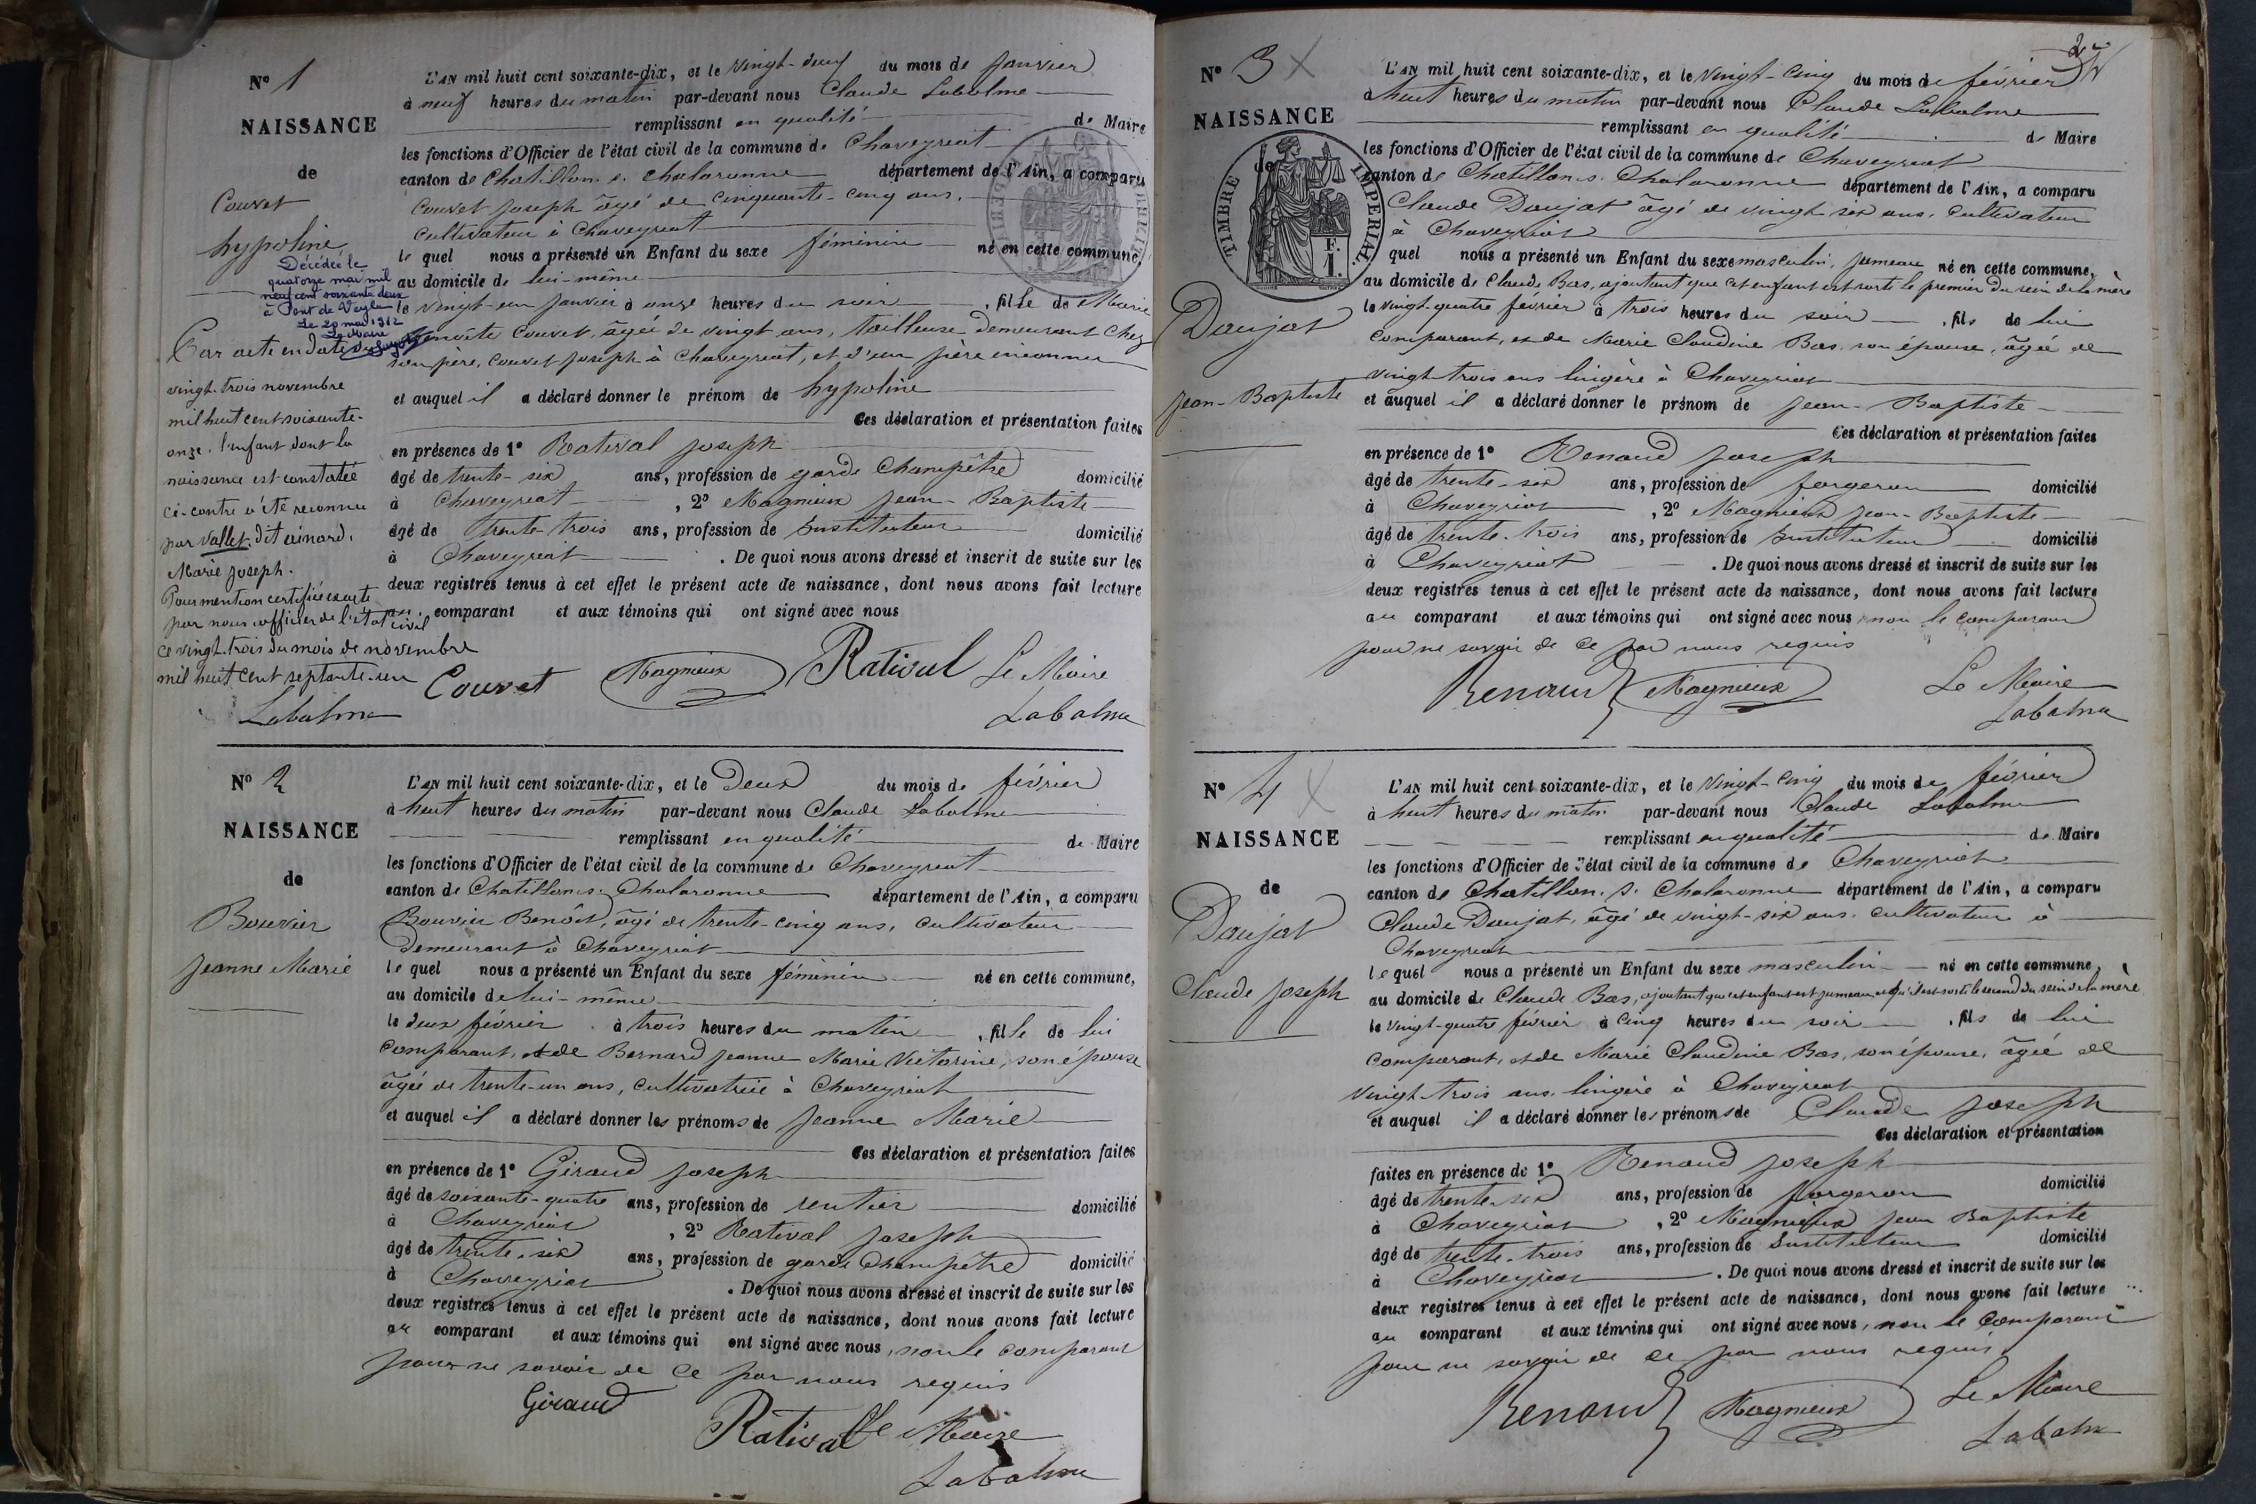 N° 1
NAISSANCE
de
Couvet
hypoline
Décédée le
quatorze mai mil
neuf cent soixante deux
à Pont de Veyle
Le 20 mai 1962
Le Maire
Par acte en date du
vingt-trois novembre
mil huit cent soixante-
onze, l'enfant dont la
naissance est constatée
ci-contre a été reconnu
par Vallet, dit ainard,
Marie Joseph.
Pour mention certifiée exacte
par nous officier de l'état civil
ce vingt-trois du mois de novembre
mil huit cent septante-un
Labalme
L'AN mil huit cent soixante-dix, et le vingt-deux du mois de janvier
à neuf heures du matin par-devant nous Claude Labalme
remplissant en qualité de Maire
les fonctions d'Officier de l'état civil de la commune de Chaveyriat
canton de Chatillon s. Chalaronne département de l'Ain, a comparu
Couvet Joseph âgé de cinquante-cinq ans,
cultivateur à Chaveyriat
le quel nous a présenté un Enfant du sexe féminin né en cette commune,
au domicile de lui-même
le vingt-un janvier à onze heures du soir, fille de Marie
Benoite Couvet, âgée de vingt ans, tailleuse demeurant chez
son père, Couvet Joseph à Chaveyriat, et d'un père inconnu
et auquel il a déclaré donner le prénom de hypoline
Ces déclaration et présentation faites
en présence de 1° Ratival Joseph
âgé de trente-six ans, profession de garde Champêtre domicilié
à Chaveyriat, 2° Magnieux Jean-Baptiste
âgé de trente-trois ans, profession de Instituteur domicilié
à Chaveyriat. De quoi nous avons dressé et inscrit de suite sur les
deux registres tenus à cet effet le présent acte de naissance, dont nous avons fait lecture
au comparant et aux témoins qui ont signé avec nous
Couvet Magnieux Ratival Le Maire
Labalme
N° 2
NAISSANCE
de
Bouvier
Jeanne Marie
L'AN mil huit cent soixante-dix, et le Deux du mois de février
à huit heures du matin par-devant nous Claude Labalme
remplissant en qualité de Maire
les fonctions d'Officier de l'état civil de la commune de Chaveyriat
canton de Chatillon s. Chalaronne département de l'Ain, a comparu
Bouvier Benoit, âgé de trente-cinq ans, cultivateur
demeurant à Chaveyriat
le quel nous a présenté un Enfant du sexe féminin né en cette commune,
au domicile de lui-même
le deux février à trois heures du matin, fille de lui
comparant, et de Bernard Jeanne Marie Victorine, son épouse
âgée de trente-un ans, cultivatrice à Chaveyriat
et auquel il a déclaré donner les prénoms de Jeanne Marie
Ces déclaration et présentation faites
en présence de 1° Giraud Joseph
âgé de soixante-quatre ans, profession de rentier domicilié
à Chaveyriat, 2° Ratival Joseph
âgé de trente-six ans, profession de garde Champêtre domicilié
à Chaveyriat. De quoi nous avons dressé et inscrit de suite sur les
deux registres tenus à cet effet le présent acte de naissance, dont nous avons fait lecture
au comparant et aux témoins qui ont signé avec nous, non le comparant
pour ne savoir de ce par nous requis
Giraud Ratival Le Maire
Labalme
2
N° 3
NAISSANCE
de
TIMBRE IMPERIAL.
F.
I.
Daujat
Jean-Baptiste
L'AN mil huit cent soixante-dix, et le vingt-cinq du mois de février
à huit heures du matin par-devant nous Claude Labalme
remplissant en qualité de Maire
les fonctions d'Officier de l'état civil de la commune de Chaveyriat
canton de Chatillon s. Chalaronne département de l'Ain, a comparu
Claude Daujat âgé de vingt-six ans, cultivateur
à Chaveyriat
quel nous a présenté un Enfant du sexe masculin, jumeau né en cette commune,
au domicile de Claude Bas, ajoutant que cet enfant est sorti le premier du sein de la mère
le vingt-quatre février à trois heures du soir, fils de lui
comparant, et de Marie Claudine Bas, son épouse, âgée de
vingt-trois ans lingère à Chaveyriat
et auquel il a déclaré donner le prénom de Jean-Baptiste
Ces déclaration et présentation faites
en présence de 1° Renaud Joseph
âgé de trente-six ans, profession de forgeron domicilié
à Chaveyriat, 2° Magnieux Jean-Baptiste
âgé de trente-trois ans, profession de Instituteur domicilié
à Chaveyriat. De quoi nous avons dressé et inscrit de suite sur les
deux registres tenus à cet effet le présent acte de naissance, dont nous avons fait lecture
au comparant et aux témoins qui ont signé avec nous non le comparant
pour ne savoir de ce par nous requis
Renaud Magnieux Le Maire
Labalme
N° 4
NAISSANCE
de
Daujat
Claude Joseph
L'AN mil huit cent soixante-dix, et le vingt-cinq du mois de février
à huit heures du matin par-devant nous Claude Labalme
remplissant en qualité de Maire
les fonctions d'Officier de l'état civil de la commune de Chaveyriat
canton de Chatillon s. Chalaronne département de l'Ain, a comparu
Claude Daujat, âgé de vingt-six ans, cultivateur à
Chaveyriat
le quel nous a présenté un Enfant du sexe masculin né en cette commune,
au domicile de Claude Bas, ajoutant que cet enfant est jumeau et qu'il est sorti le second du sein de la mère
le vingt-quatre février à cinq heures du soir, fils de lui
comparant, et de Marie Claudine Bas, son épouse, âgée de
vingt-trois ans, lingère à Chaveyriat
et auquel il a déclaré donner les prénoms de Claude Joseph
Ces déclaration et présentation
faites en présence de 1° Renaud Joseph
âgé de trente-six ans, profession de forgeron domicilié
à Chaveyriat, 2° Magnieux Jean Baptiste
âgé de trente-trois ans, profession de Instituteur domicilié
à Chaveyriat. De quoi nous avons dressé et inscrit de suite sur les
deux registres tenus à cet effet le présent acte de naissance, dont nous avons fait lecture
au comparant et aux témoins qui ont signé avec nous, non le comparant
pour ne savoir de ce par nous requis
Renaud Magnieux Le Maire
Labalme